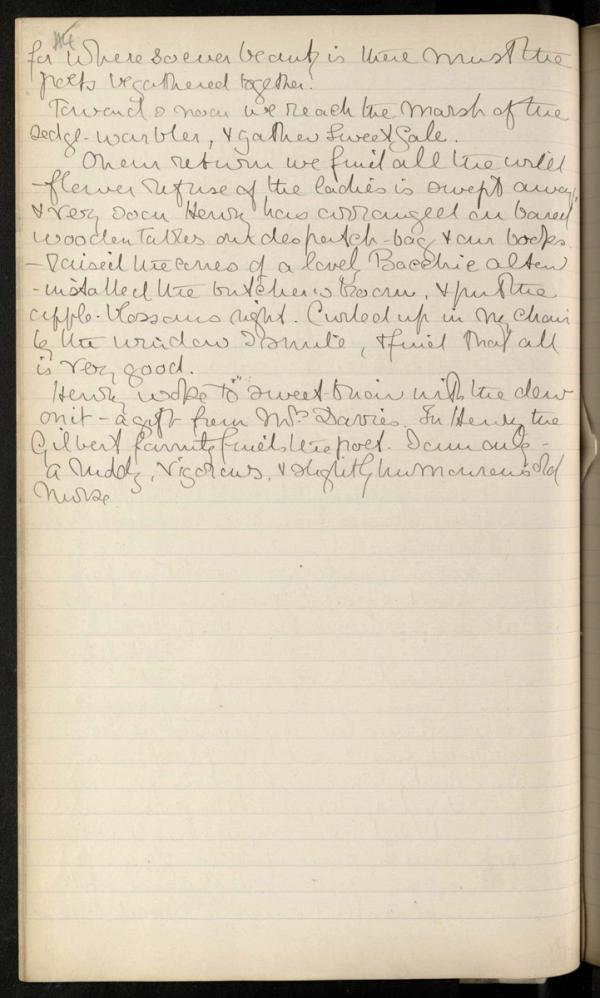 for wheresoever beauty is there must the
poets be gathered together.
Toward noon we reach the marsh of the
sedge-warbler, & gather sweet gale.
On our return we find all the wild
-flower refuse of the ladies is swept away,
& very soon Henry has arranged on bared
wooden tables our despatch-bag & our books.
- raised the cross of a level, Bacchic altar
- installed the butcher's broom, & put the
apple-blossoms right. Curled up in my chair
by the window I smile, & find that all
is very good.
Henry woke to sweet-briar with the dew
on it - a gift from Mrs Davies. In Henry the
Gilbert family finds the poet. I am only -
a ruddy, vigorous, & slightly humourous old
nurse